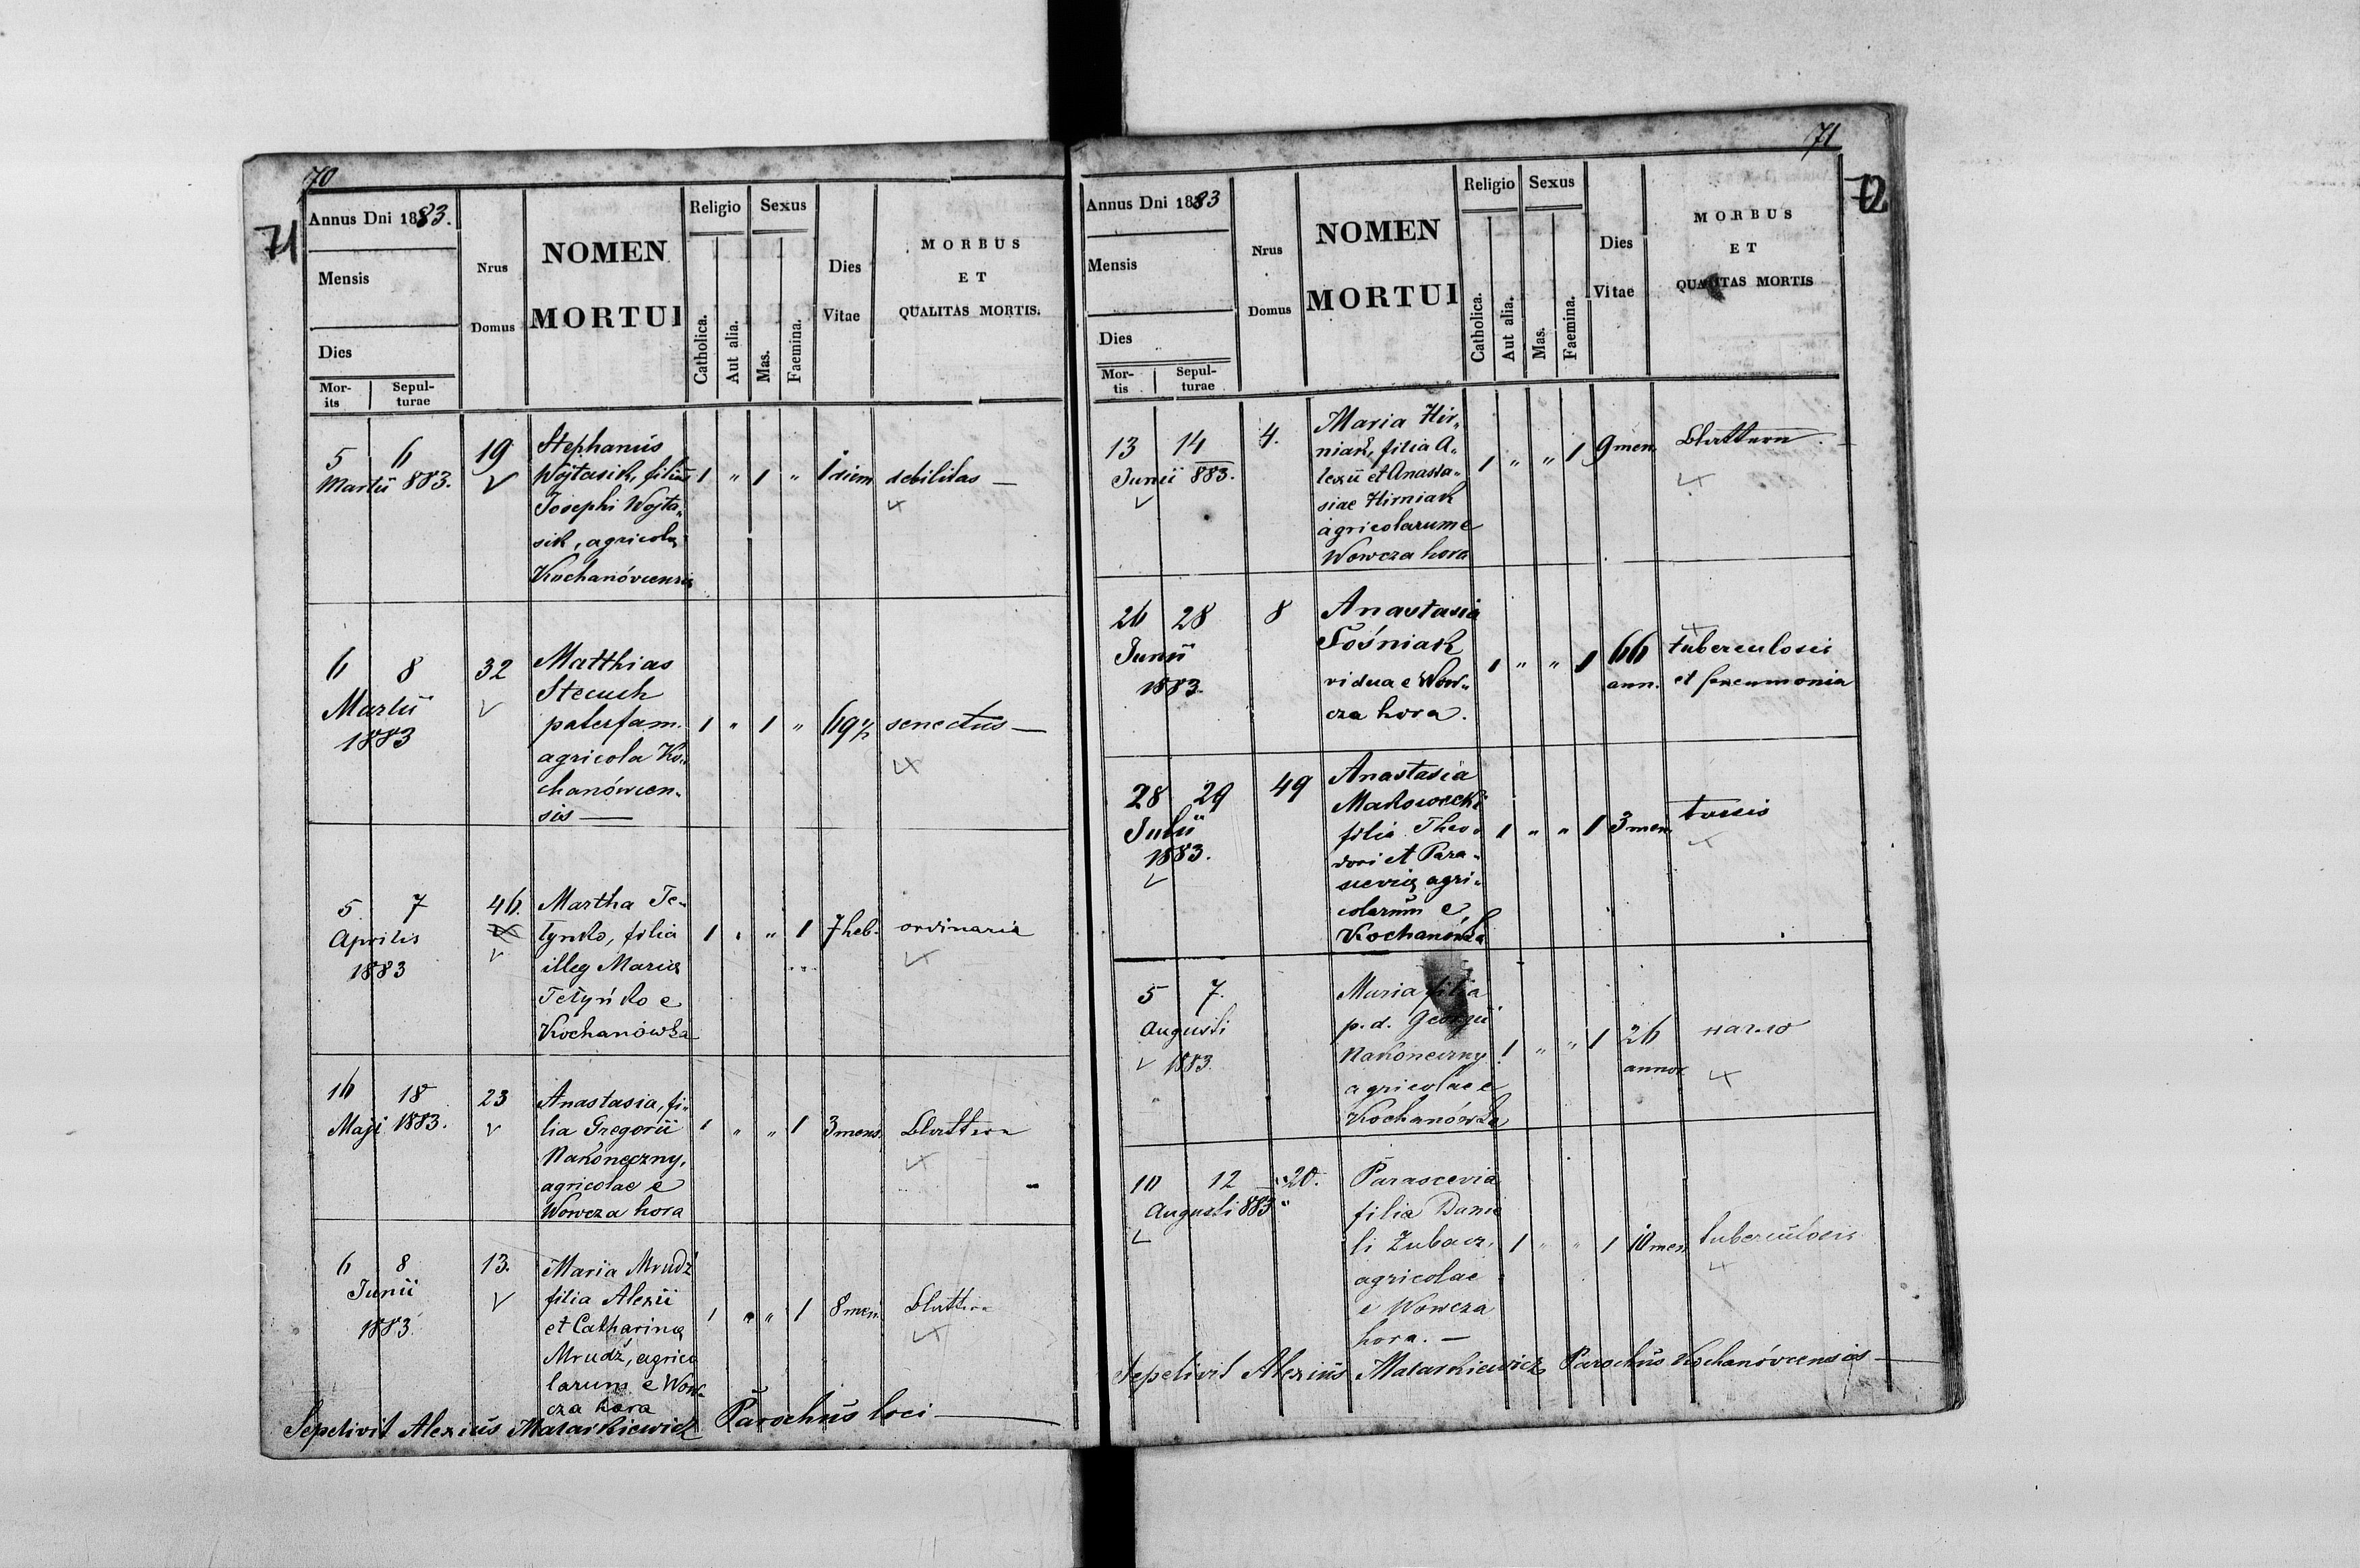 70
71
Annus Dni 1883.
Mensis
Dies
Mor-
its
Sepul-
turae
Nrus
Domus
NOMEN
MORTUI
Religio
Catholica.
Aut alia.
Sexus
Mas.
Faemina.
Dies
Vitae
MORBUS
ET
QUALITAS MORTIS.
5 6 19 Stephanus
Martii 883. Wojtasik, filius 1 " 1 " 1 diem debilitas —
Josephi Wojta„
sik, agricolę
Kochanóvcensis
6 8 32 Matthias
Martii Stecuch
1883 paterfam. 1 " 1 " senectus —
agricola Ko„
chanówcen„
sis —
5 7 46. Martha Te„
Aprilis tynko, filia 1 " " 1 7 heb. ordinaria
1883 illeg Marię
Tetyńko e
Kochanówka
16 18 23 Anastasia, fi„
Maji 1883. lia Gregorii 1 " " 1 3 mens. Blattern
Nakoneczny,
agricolae e
Wowcza hora
6 8 13. Maria Mrudź
Junii filia Alexii
1883. et Catharinę 1 " " 1 8 men. Blattern
Mrudź, agrico
larum e Wow„
cza hora
Sepelivit Alexius Matarkiewicz Parochus loci —
71
72
Annus Dni 1883
Mensis
Dies
Mor-
tis
Sepul-
turae
Nrus
Domus
NOMEN
MORTUI
Religio
Catholica.
Aut alia.
Sexus
Mas.
Faemina.
Dies
Vitae
MORBUS
ET
QUALITAS MORTIS
13 14 4. Maria Hir„
Junii 883. niak, filia A„ 1 " " 1 9 men. Blattern
lexii et Anasta„
siae Hirniak
agricolarum e
Wowcza hora
26 28 8 Anastasia
Junii Łośniak
1883. vidua e Wow„ 1 " " 1 66 ann. tuberculosis
cza hora. et pneumonia
28 29 49 Anastasia
Julii Makowecki
1883. filia Theo„ 1 " " 1 3 men. tussis
dori et Para„
scevię agri„
colarum e
Kochanówka
5 7. Maria filia
Augusti p. d. Georgii
1883. Nakoneczny 1 " " 1 26 annor
agricolae e
Kochanówka
10 12 20. Parascevia
Augusti 883 filia Danie
li Zubacz, 1 " " 1 10 men. tuberculosis
agricolae
e Wowcza
hora. —
Sepelivit Alexius Matarkiewicz Parochus Kochanóvcensis —